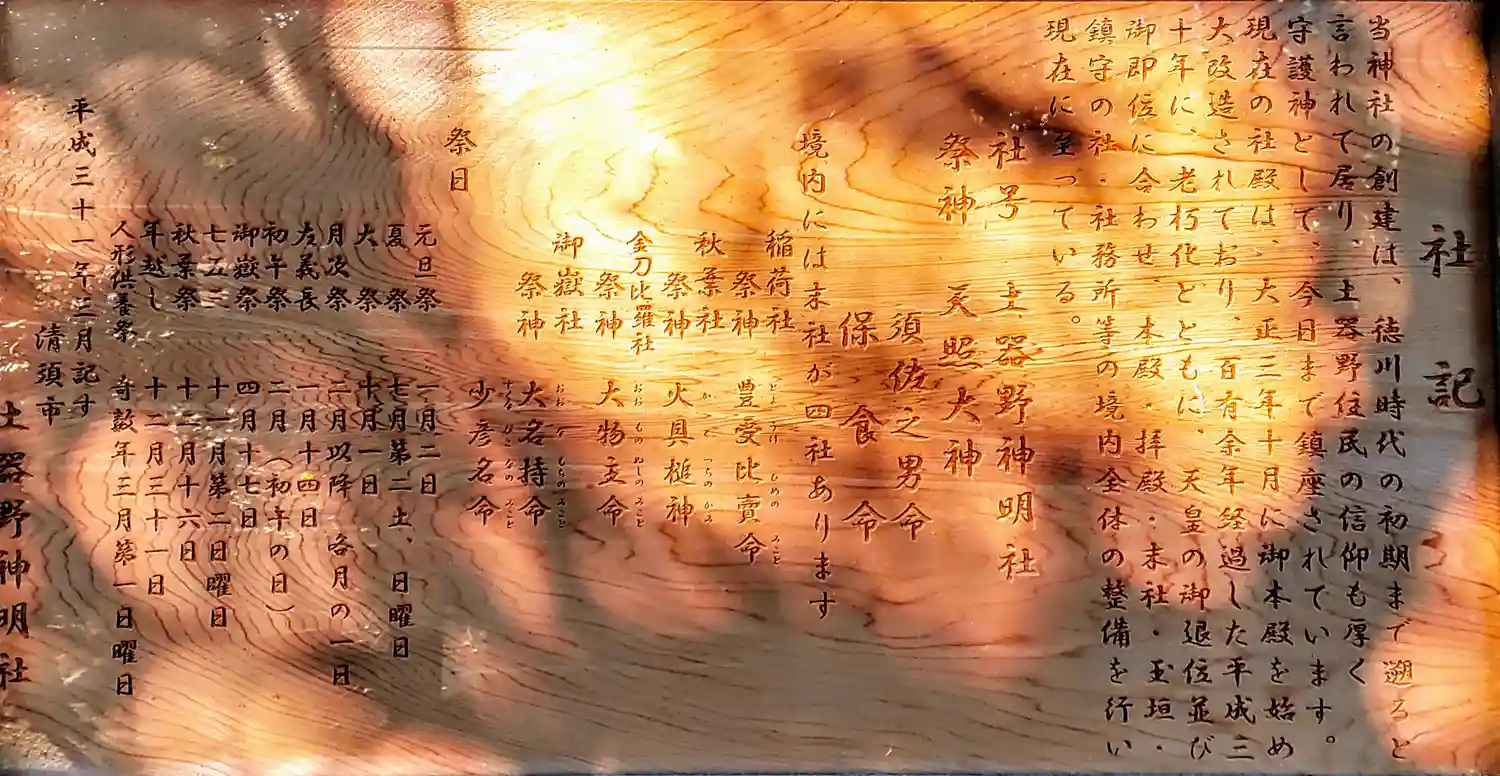 社記
当神社の創建は、徳川時代の初期まで遡ると
言われて居り、土器野住民の信仰も厚く
守護神として、今日まで鎮座されています。
現在の社殿は、大正三年十月に御本殿を始め
大改造されており、百有余年経過した平成三
十年に、老朽化とともに、天皇の御退位並び
御即位に合わせ、本殿・拝殿・末社・玉垣・
鎮守の社・社務所等の境内全体の整備を行い
現在に至っている。
社号 土器野神明社
祭神 天照大神
須佐之男命
保食命
境内には末社が四社あります
稲荷社
祭神 豊受比賣命
とようけひめのみこと
秋葉社
祭神 火具槌神
かぐつちのかみ
金刀比羅社
祭神 大物主命
おおものぬしのみこと
御嶽社
祭神 大名持命
おおなもちのみこと
祭神 少彦名命
すくなひこなのみこと
祭日
元旦祭 一月二日
夏祭 七月第二土、日曜日
大祭 十月一日
月次祭 二月以降 各月の一日
左義長 一月十四日
初午祭 二月(初午の日)
御嶽祭 四月十七日
七五三 十一月第二日曜日
秋葉祭 十二月十六日
年越し 十二月三十一日
人形供養祭 奇数年三月第一日曜日
平成三十一年三月記す
清須市
土器野神明社